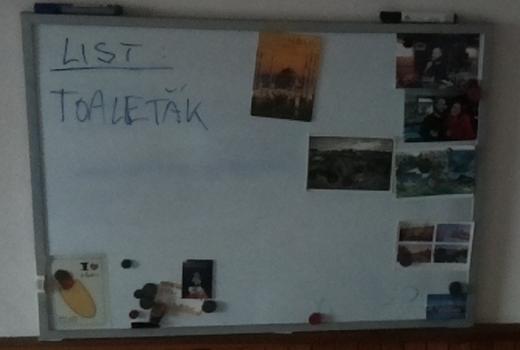 LIST
TOALEŤÁK
I